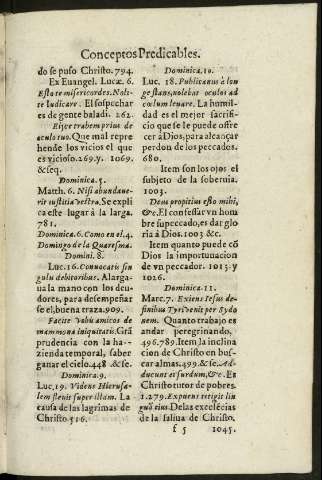 Conceptos Predicables.
do se puso Christo. 794.
Ex Euangel. Lucæ. 6.
Estote misericordes. Noli-
te Iudicare. El sospechar
es de gente baladi. 262.
Eijce trabem prius de
oculo tuo. Que mal repre
hende los vicios el que
es vicioso. 269. y. 1069.
&seq.
Dominica. 5.
Matth. 6. Nisi abundaue-
rit iustitia vestra. Se expli
ca este lugar à la larga.
781.
Dominica. 6. Como en el. 4.
Domingo de la Quaresma.
Domini. 8.
Luc. 16. Conuocatis sin
gulis debitoribus. Alarga-
ua la mano con los deu-
dores, para desempeñar
se el, buena traza. 909.
Facite vobis amicos de
mammona iniquitatis. Grã
prudencia con la ha-
zienda temporal, saber
ganar el cielo. 448. &se.
Dominica. 9.
Luc. 19. Videns Hierusa-
lem fleuit super illam. La
causa de las lagrimas de
Christo. 516.
Dominica. 10.
Luc. 18. Publicanus à lon
ge stans, nolebat oculos ad
cœlum leuare. La humil-
dad es el mejor sacrifi-
cio que se le puede ofre
cer à Dios, para alcançar
perdon de los peccados.
680.
Item son los ojos el
subjeto de la soberuia.
1003.
Deus propitius esto mihi,
&c. El confessar vn hom
bre su peccado, es dar glo
ria à Dios. 1003 &c.
Item quanto puede cõ
Dios la importunacion
de vn peccador. 1013. y
1026.
Dominica. 11.
Marc. 7. Exiens Iesus de
finibus Tyri venit per Sydo
nem. Quanto trabajo es
andar peregrinando.
496. 789. Item la inclina
cion de Christo en bus-
car almas. 499. &se. Ad-
ducunt ei surdum, &c. Es
Christo tutor de pobres.
1279. Expuens tetigit lin
guã eius. De las excelēcias
de la saliua de Christo.
f 5 1045.